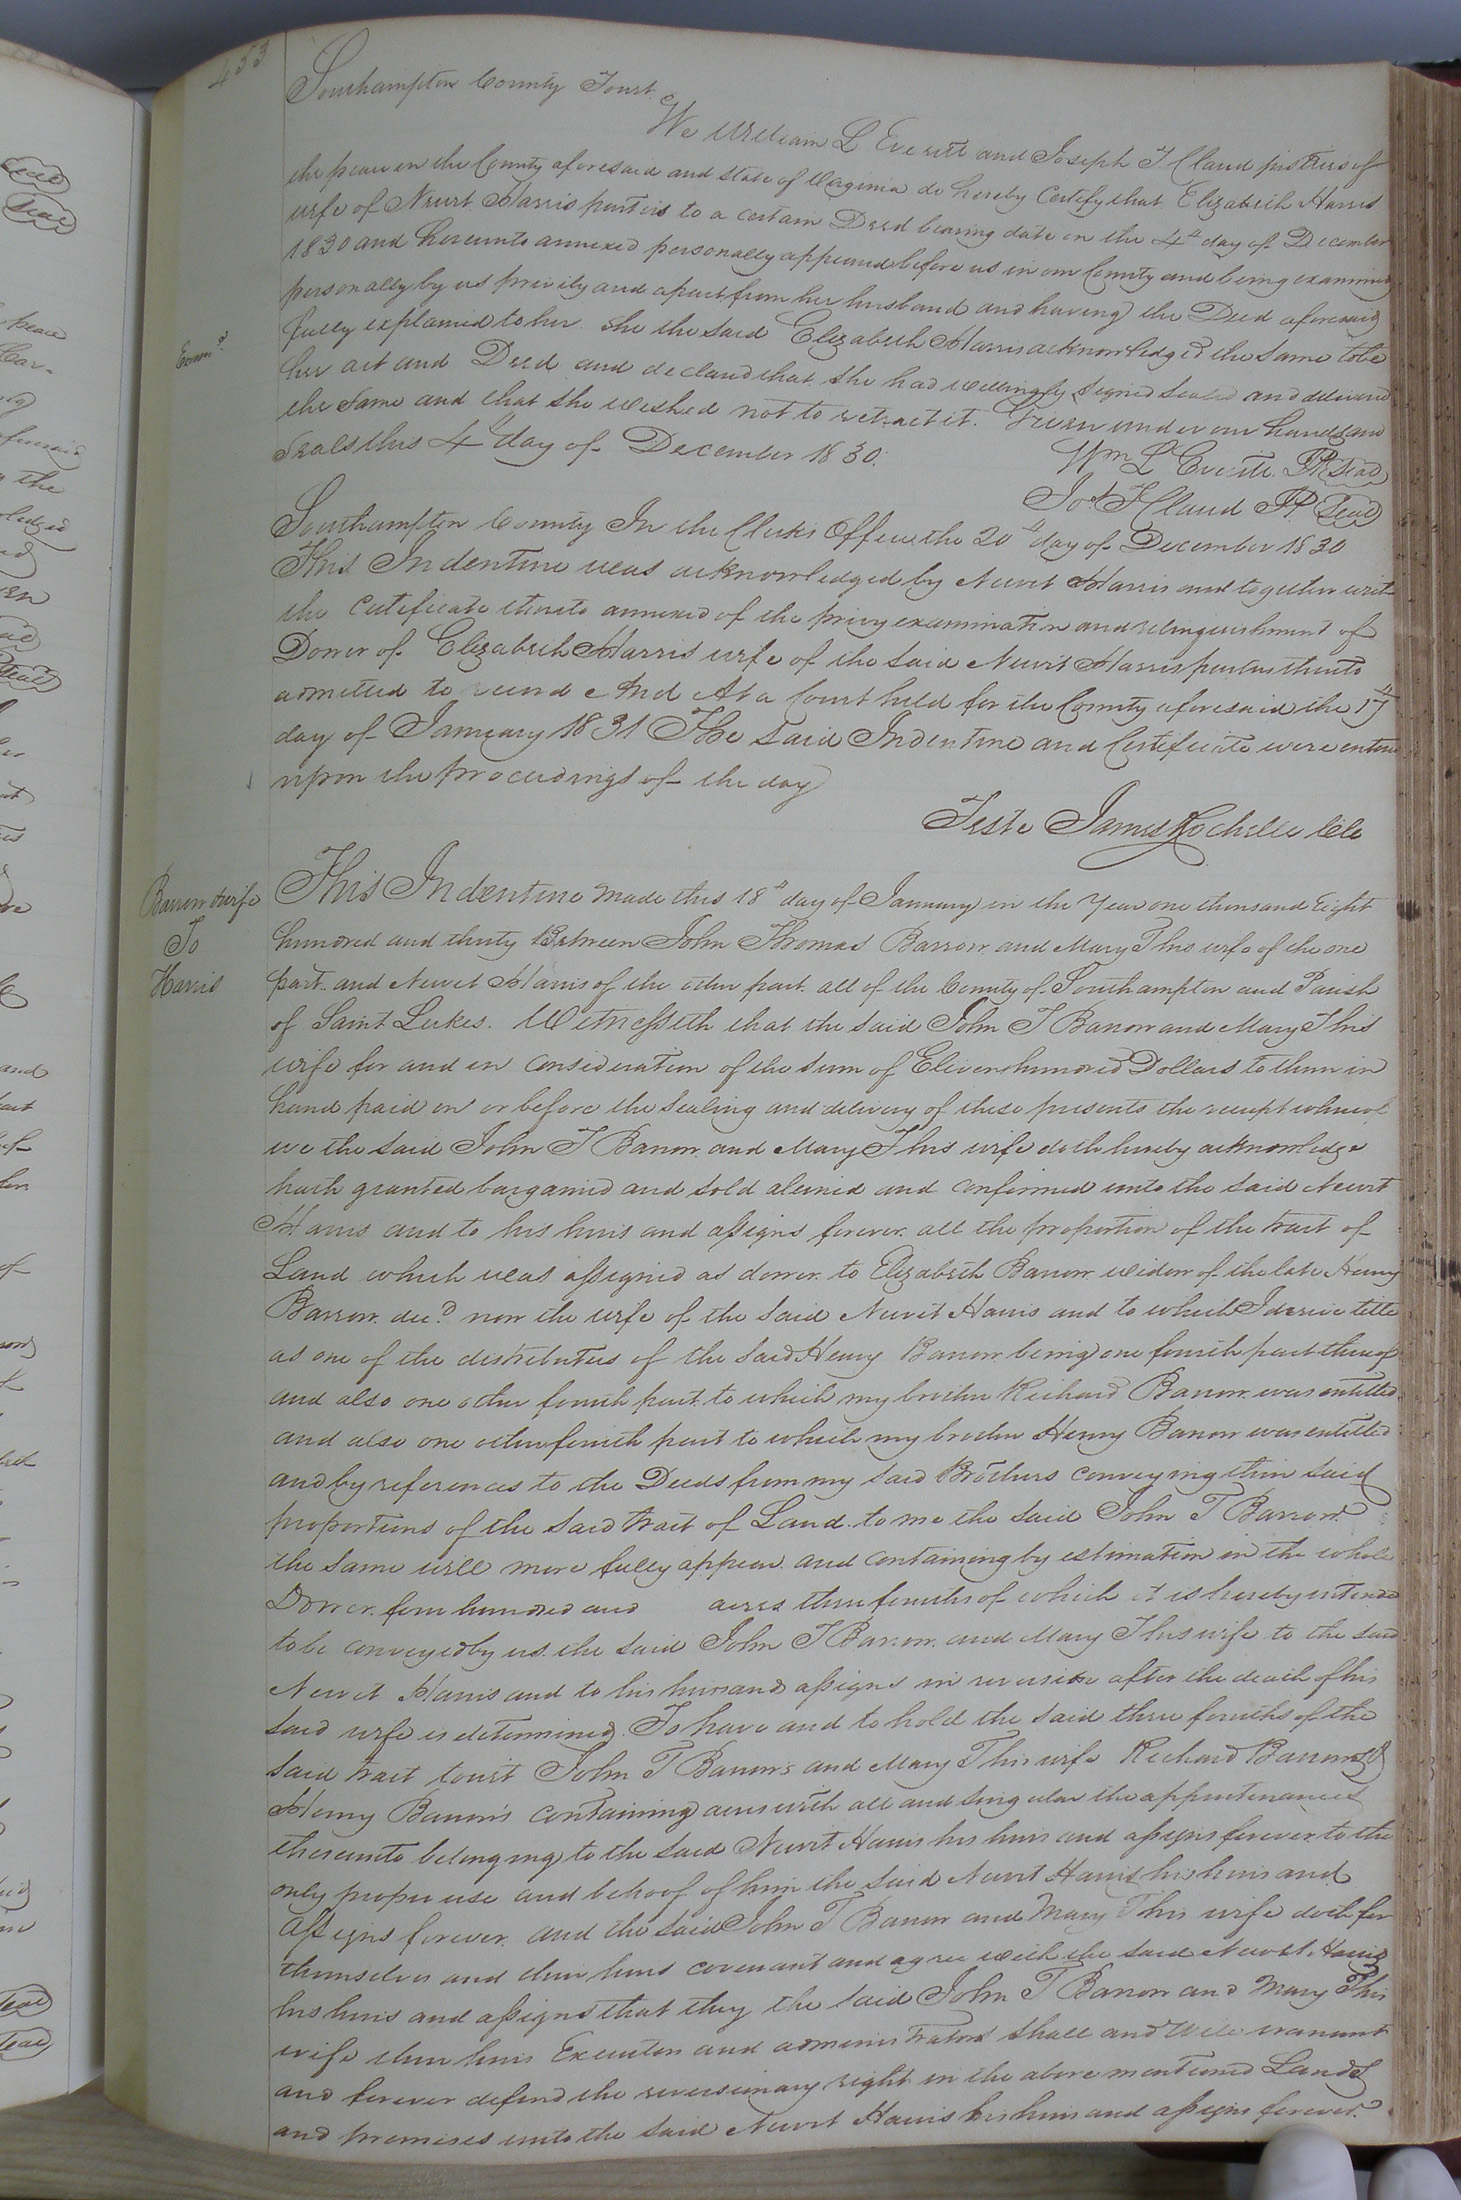 453
Southampton County Towit
We William L Everitt and Joseph T Claud justices of
the peace in the County aforesaid and State of Virginia do hereby certify that Elizabeth Harris
wife of Newit Harris parties to a certain Deed bearing date on the 4th day of December
1830 and hereunto annexed personally appeared before us in our County and being examined
personally by us privily and apart from her husband and having the Deed aforesaid
Exam.d
fully explained to her She the said Elizabeth Harris acknowledged the same to be
her act and Deed and declared that she had willingly signed sealed and delivered
the same and that she wished not to retract it. Given under our hands and
Seals this 4th day of December 1830.
Wm L Everitt JP Seal
Jos T Claud JP Seal
Southampton County In the Clerks Office the 20th day of December 1830
This Indenture was acknowledged by Newit Harris and together with
the Certificate thereto annexed of the privy examination and relinquishment of
Dower of Elizabeth Harris wife of the said Newit Harris parties thereto
admitted to record And At a Court held for the County aforesaid the 17th
day of January 1831 The said Indenture and Certificate were entered
upon the proceedings of the day
Teste James Rochelle Clk
Barrow & wife
To
Harris
This Indenture made this 18th day of January in the Year one thousand Eight
hundred and thirty Between John Thomas Barrow and Mary T his wife of the one
part and Newit Harris of the other part all of the County of Southampton and Parish
of Saint Lukes. Witnesseth that the said John T Barrow and Mary T his
wife for and in consideration of the sum of Eleven hundred Dollars to them in
hand paid on or before the sealing and delivery of these presents the receipt whereof
we the said John T Barrow and Mary T his wife doth hereby acknowledge
hath granted bargained and sold aliened and confirmed unto the said Newit
Harris and to his heirs and assigns forever all the proportion of the tract of
Land which was assigned as dower to Elizabeth Barrow widow of the late Henry
Barrow dec.d now the wife of the said Newit Harris and to which I derive title
as one of the distributees of the said Henry Barrow being one fourth part thereof
and also one other fourth part to which my brother Richard Barrow was entitled
and also one other fourth part to which my brother Henry Barrow was entitled
and by references to the Deeds from my said Brothers conveying their said
proportions of the said tract of Land to me the said John T Barrow
the same will more fully appear and containing by estimation in the whole
Dower four hundred and acres three fourths of which it is hereby intended
to be conveyed by us the said John T Barrow and Mary T his wife to the said
Newit Harris and to his heirs and assigns in reversion after the death of his
said wife is determined To have and to hold the said three fourths of the
said tract towit John T Barrow's and Mary T his wife Richard Barrow's &
Henry Barrow's containing acres with all and singular the appurtenances
thereunto belonging to the said Newit Harris his heirs and assigns forever to the
only proper use and behoof of him the said Newit Harris his heirs and
assigns forever and the said John T Barrow and Mary T his wife doth for
themselves and their heirs covenant and agree with the said Newit Harris
his heirs and assigns that they the said John T Barrow and Mary T his
wife their heirs Executors and administrators shall and will warrant
and forever defend the reversionary right in the above mentioned Lands
and premises unto the said Newit Harris his heirs and assigns forever.